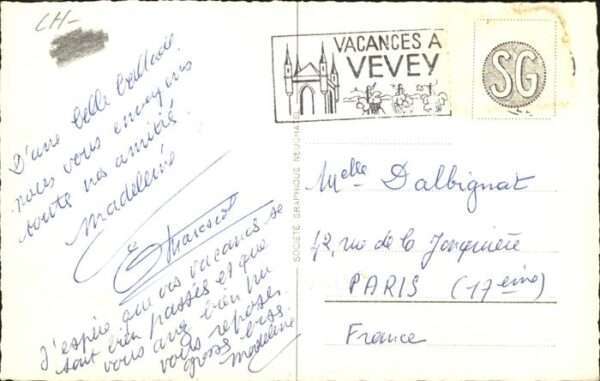 CH-
D'une belle ballade
nous vous envoyons
toute nos amitié.
Madeleine
J'espère que vos vacances se
sont bien passés et que
vous avez bien pu
vous reposer.
gross bess.
Madeleine
VACANCES A
VEVEY
SG
SOCIÉTÉ GRAPHIQUE NEUCHATEL
Melle Dalbignat
42, rue de la Jonquière
PARIS (17eme)
France